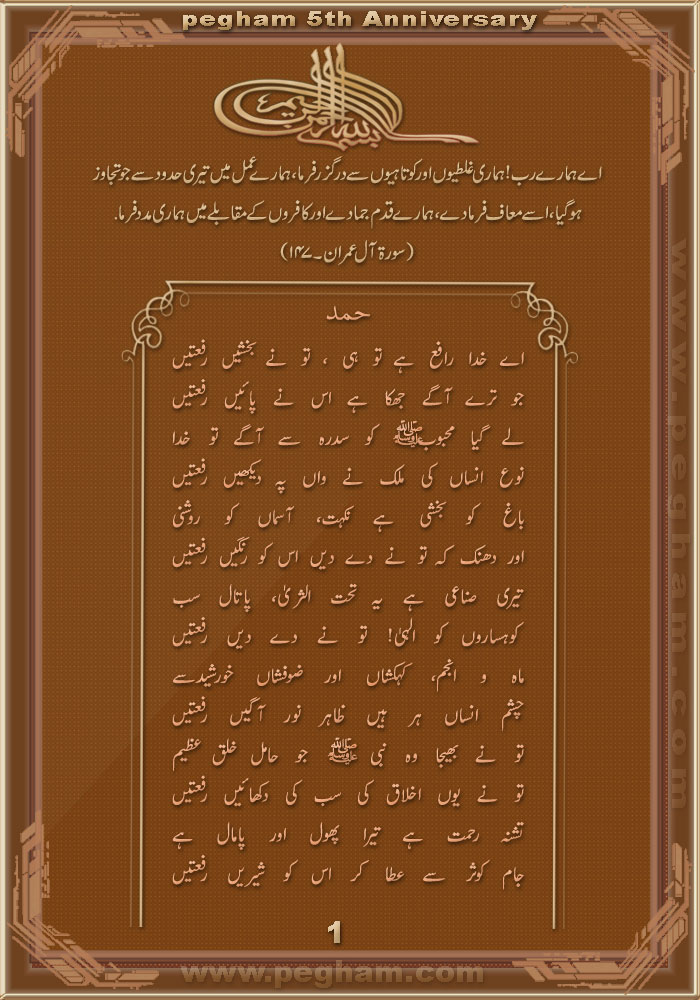 pegham 5th Anniversary
بسم الله الرحمن الرحیم
اے ہمارے رب! ہماری غلطیوں اور کوتاہیوں سے درگزر فرما، ہمارے عمل میں تیری حدود سے جو تجاوز
ہو گیا، اسے معاف فرما دے، ہمارے قدم جما دے اور کافروں کے مقابلے میں ہماری مدد فرما.
(سورۃ آل عمران۔۱۴۷)
حمد
اے خدا رافع ہے تو ہی ، تو نے بخشیں رفعتیں
جو ترے آگے جھکا ہے اس نے پائیں رفعتیں
لے گیا محبوبﷺ کو سدرہ سے آگے تو خدا
نوع انساں کی ملک نے واں پہ دیکھیں رفعتیں
باغ کو بخشی ہے نکہت، آسماں کو روشنی
اور دھنک کہ تو نے دے دیں اس کو رنگیں رفعتیں
تیری صناعی ہے یہ تحت الثریٰ، پاتال سب
کوہساروں کو الٰہی! تو نے دے دیں رفعتیں
ماہ و انجم، کہکشاں اور ضوفشاں خورشید سے
چشم انساں ہر ہیں ظاہر نور آگیں رفعتیں
تو نے بھیجا وہ نبی ﷺ جو حامل خلق عظیم
تو نے یوں اخلاق کی سب کی دکھائیں رفعتیں
تشنہ رحمت ہے تیرا پھول اور پامال ہے
جام کوثر سے عطا کر اس کو شیریں رفعتیں
1
www.pegham.com
www.pegham.com